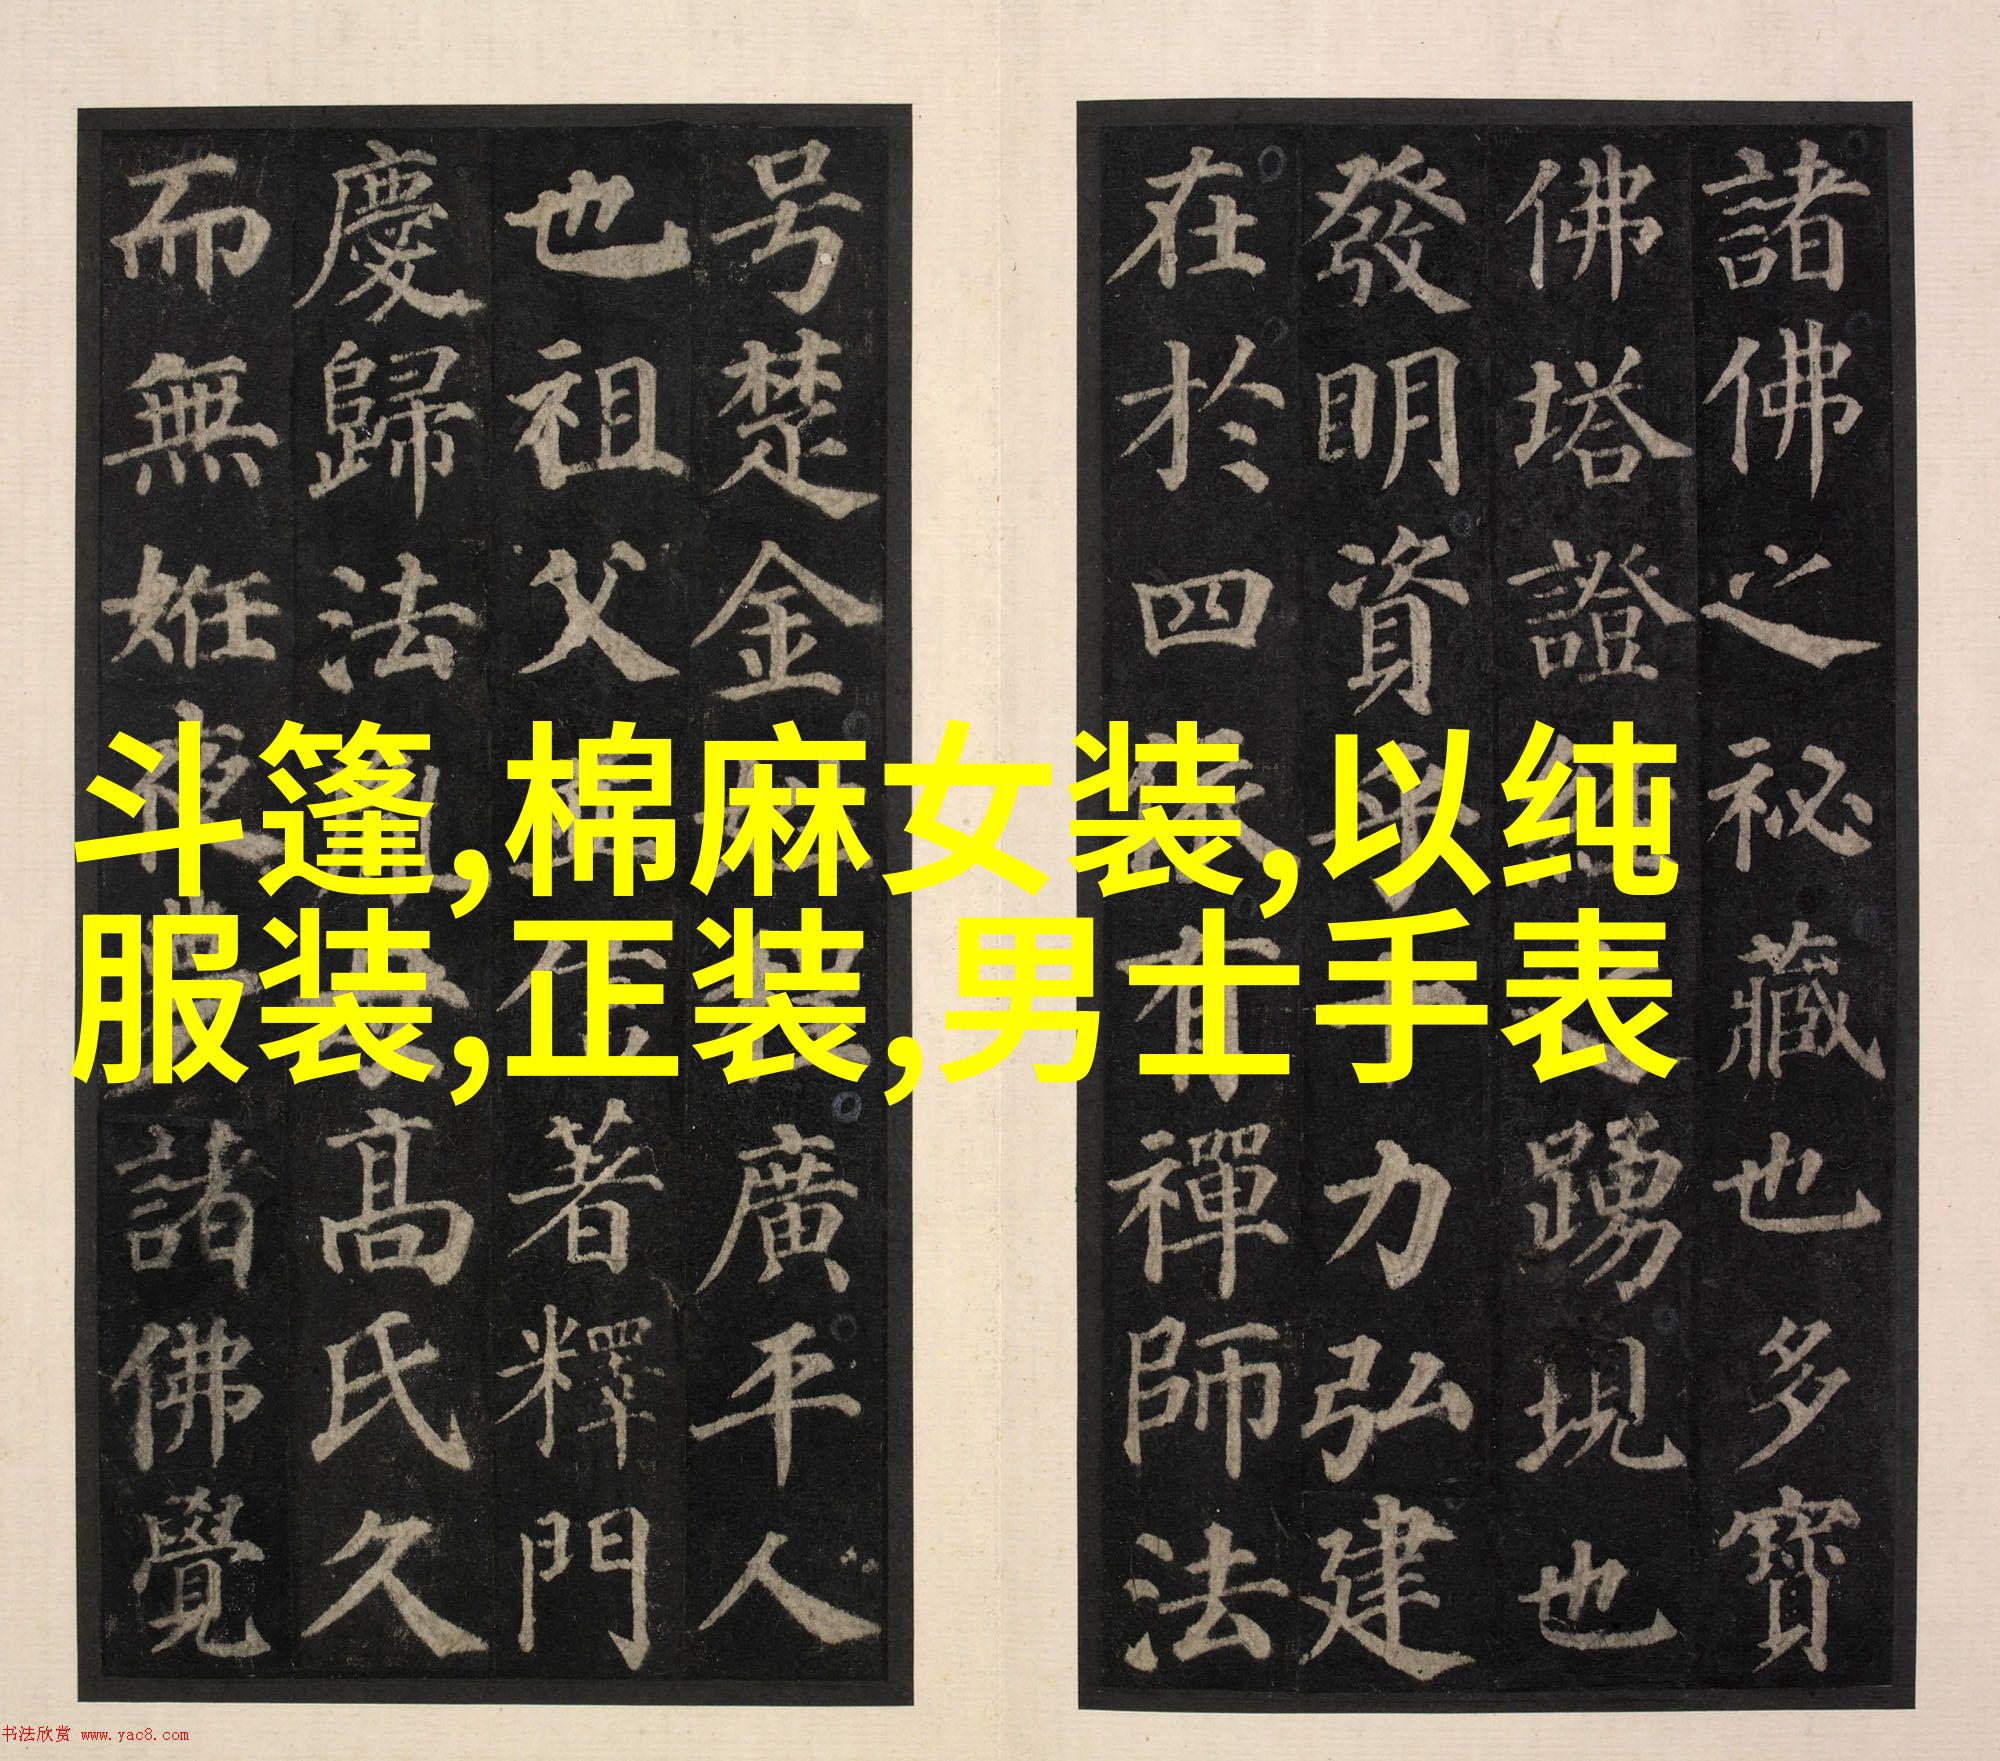 諸佛之祕藏也多寶
佛塔證踴現也
發明資乎力弘建
在於四有禪師法
号楚金廣平人
也祖父著釋門
慶歸法高氏久
而無姙夜諸佛覺
斗篷,棉麻女装,以纯
服装,正装,男士手表
书法欣赏 www.yac8.com